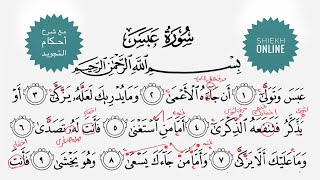 مع شرح
أحكام
التجويد
SHIEKH
ONLINE
سُورَةُ عَبَسَ
بِسْمِ اللَّهِ الرَّحْمَٰنِ الرَّحِيمِ
عَبَسَ وَتَوَلَّىٰ ١ أَن جَاءَهُ الْأَعْمَىٰ ٢ وَمَا يُدْرِيكَ لَعَلَّهُ يَزَّكَّىٰ ٣ أَوْ
يَذَّكَّرُ فَتَنفَعَهُ الذِّكْرَىٰ ٤ أَمَّا مَنِ اسْتَغْنَىٰ ٥ فَأَنتَ لَهُ تَصَدَّىٰ ٦
وَمَا عَلَيْكَ أَلَّا يَزَّكَّىٰ ٧ وَأَمَّا مَن جَاءَكَ يَسْعَىٰ ٨ وَهُوَ يَخْشَىٰ ٩ فَأَنتَ